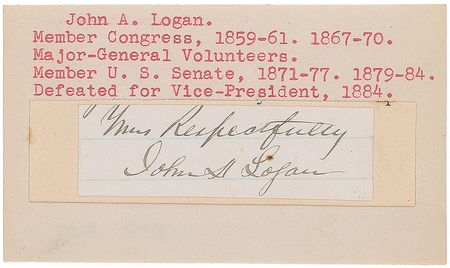 John A. Logan.
Member Congress, 1859-61. 1867-70.
Major-General Volunteers.
Member U. S. Senate, 1871-77. 1879-84.
Defeated for Vice-President, 1884.
Yours Respectfully
John A Logan